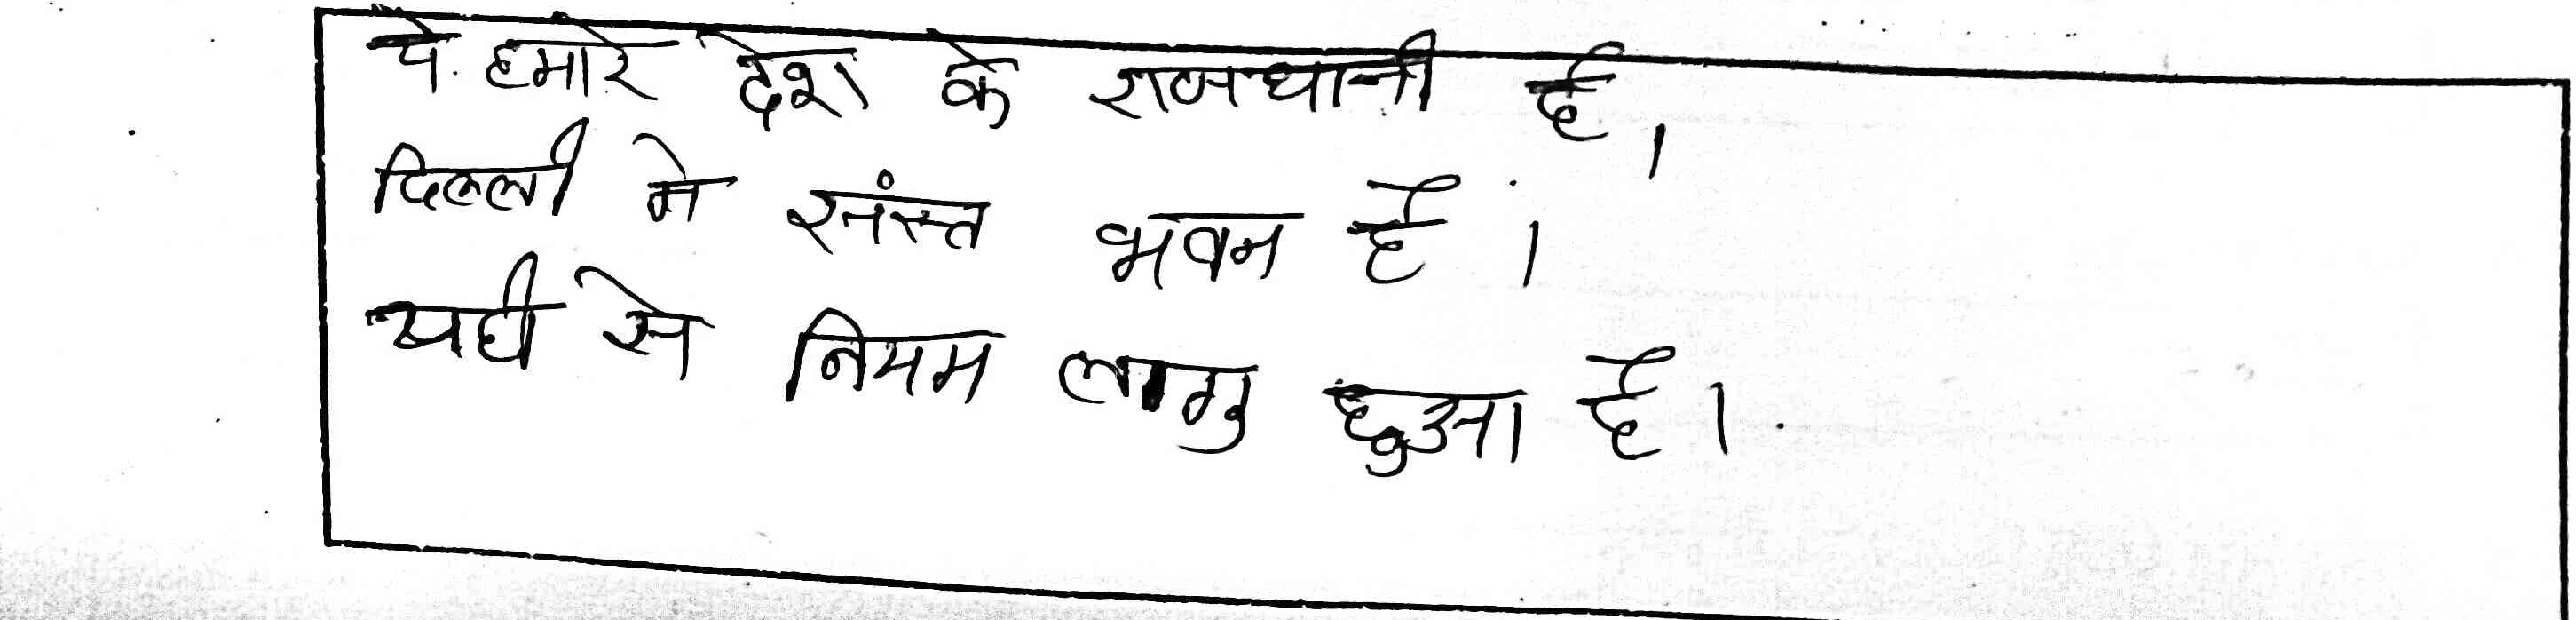 ये हमारे देश के राजधानी है।
दिल्ली मे संस्त भवन है।
यही से नियम लागु हुआ है।